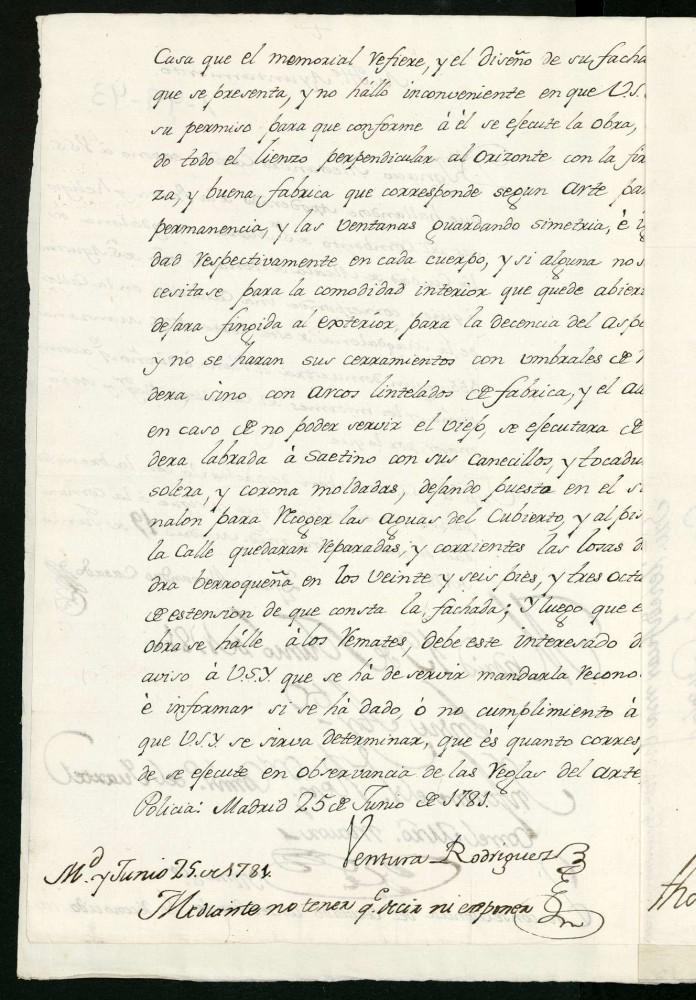 Casa que el memorial refiere, y el diseño de su facha
que se presenta, y no hállo inconveniente en que V.S.
su permiso para que conforme á él se efecute la obra,
do todo el lienzo perpendicular al orizonte con la fir
za, y buena fabrica que corresponde segun Arte pa
permanencia, y las ventanas guardando simetria, è i
dad respectivamente en cada cuerpo, y si alguna no s
cesitase para la comodidad interior que quede abier
defara fingida al exterior para la decencia del Aspe
y no se haran sus cerramientos con umbrales de
dera, sino con arcos lintelados de fabrica, y el Al
en caso de no poder servir el viefo, se efecutara de
dera labrada à Saetino con sus canecillos, y tocadu
solera, y corona moldadas, defando puesta en el
nalón para recoger las aguas del Cubierto, y al pis
la calle quedaran reparadas, y corrientes las losas d
dra berroqueña en los veinte y seis pies, y tres octa
de estension de que consta la fachada; Y luego que e
obra se hálle à los remates, debe este interesado d
aviso à V.S.Y. que se há de servir mandarla recono
è informar si se há dado, ó no cumplimiento à
que V.S.Y. se sirva determinar, que és quanto corres
de se efecute en observancia de las reglas del arte
Policia: Madrid 25 de Junio de 1781.
Ventura Rodriguez
M.d y Junio 25. de 1781.
Mediante no tener q.e decir ni exponer
tho